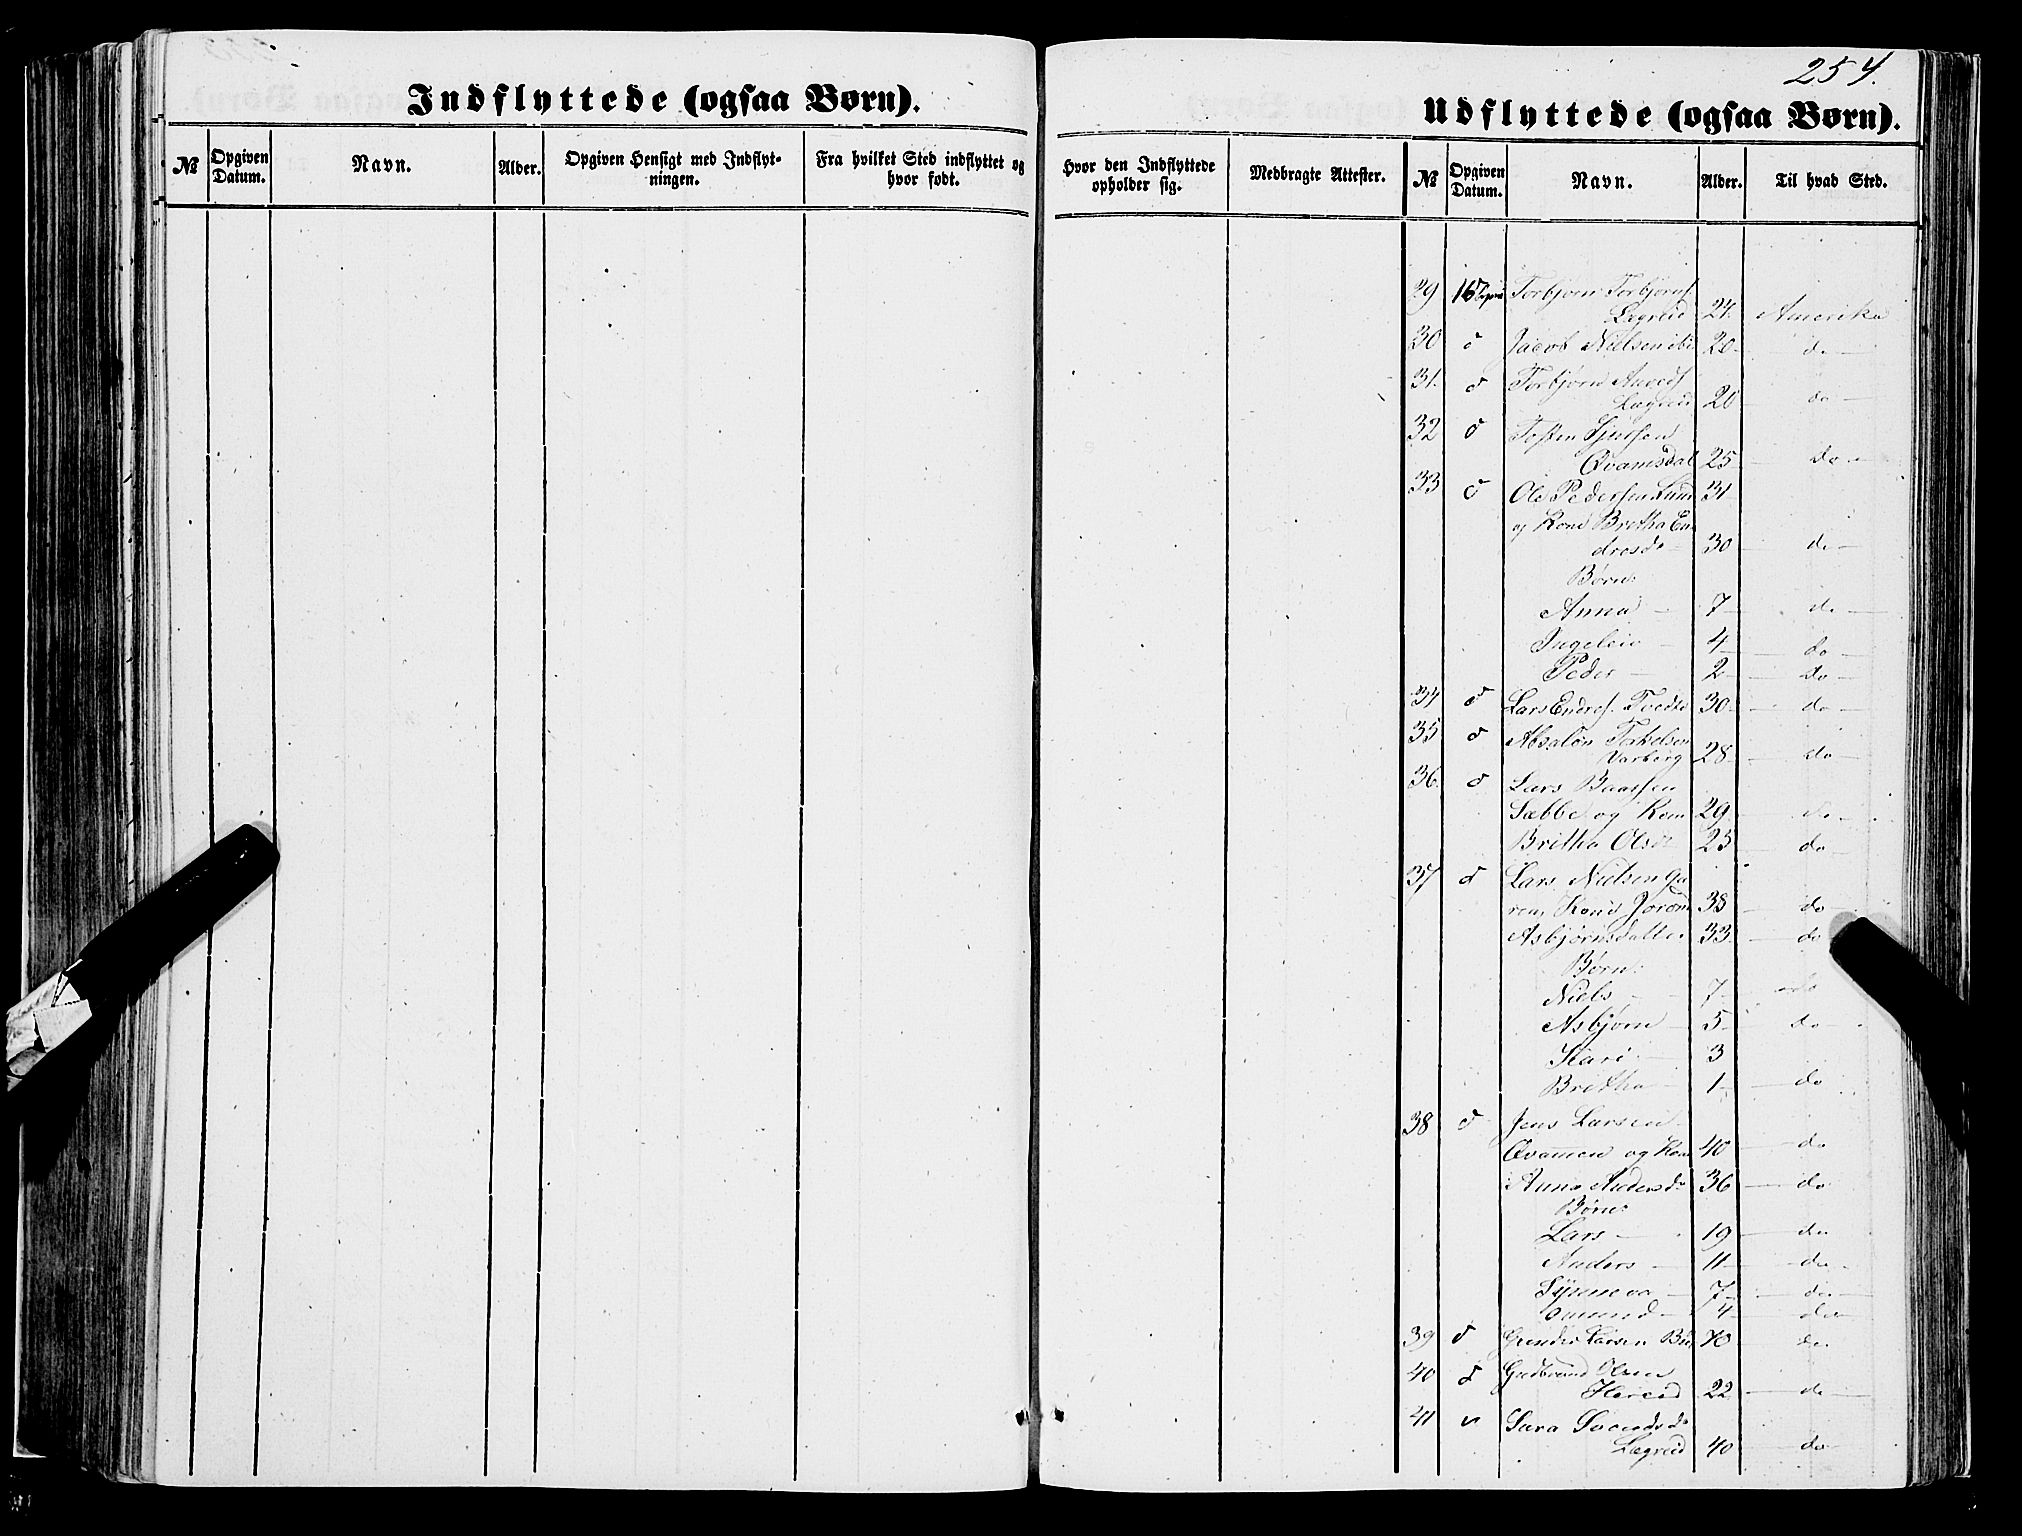 254.
Indflyttede (ogsaa Børn).
Udflyttede (ogsaa Børn).
№ Opgiven Datum. Navn. Alder. Opgiven Hensigt med Indflytningen. Fra hvilket Sted indflyttet og hvor født. Hvor den Indflyttede opholder sig. Medbragte Attester. № Opgiven Datum. Navn. Alder. Til hvad Sted.
29 16 Torbjørn Torbjørns.
Lægreid 24 Amerika
30 d Jacob Nielsen ibid 20 do
31. d Torbjørn
Lægreid 20 do
32 d Tosten Sjursen
Qvamsdal 25 do
33 d Ole Pedersen Lund 31
og Kone Britha En
dresdr 30 do
Børn:
Anna 7 do
Ingeleiv 4 do
Peder 2 do
34 d Lars Endres. Tvedte 30 do
35 d Absalon Torkelsen
Varberg 28 do
36 d Lars Baarsen
Sæbbe og Kone 29 do
Britha Olsdr 23 do
37 d Lars Nielsen Ga
ren, Kone 38 do
Asbjørnsdatter 33 do
Børn:
Niels 7 do
Asbjørn 5 do
Kari 3
Britha 1 do
38 d Jens Larsen
Qvammen og Kone 40 do
Anna Andersdr 36 do
Børn:
Lars 19 do
Anders 11 do
Synneva 7 do
Omund 4 do
39 d Larsen do
40 d Gudbrand Olsen
Hereid 22 do
41 Sara Svendsdr
Lægreid 40 do